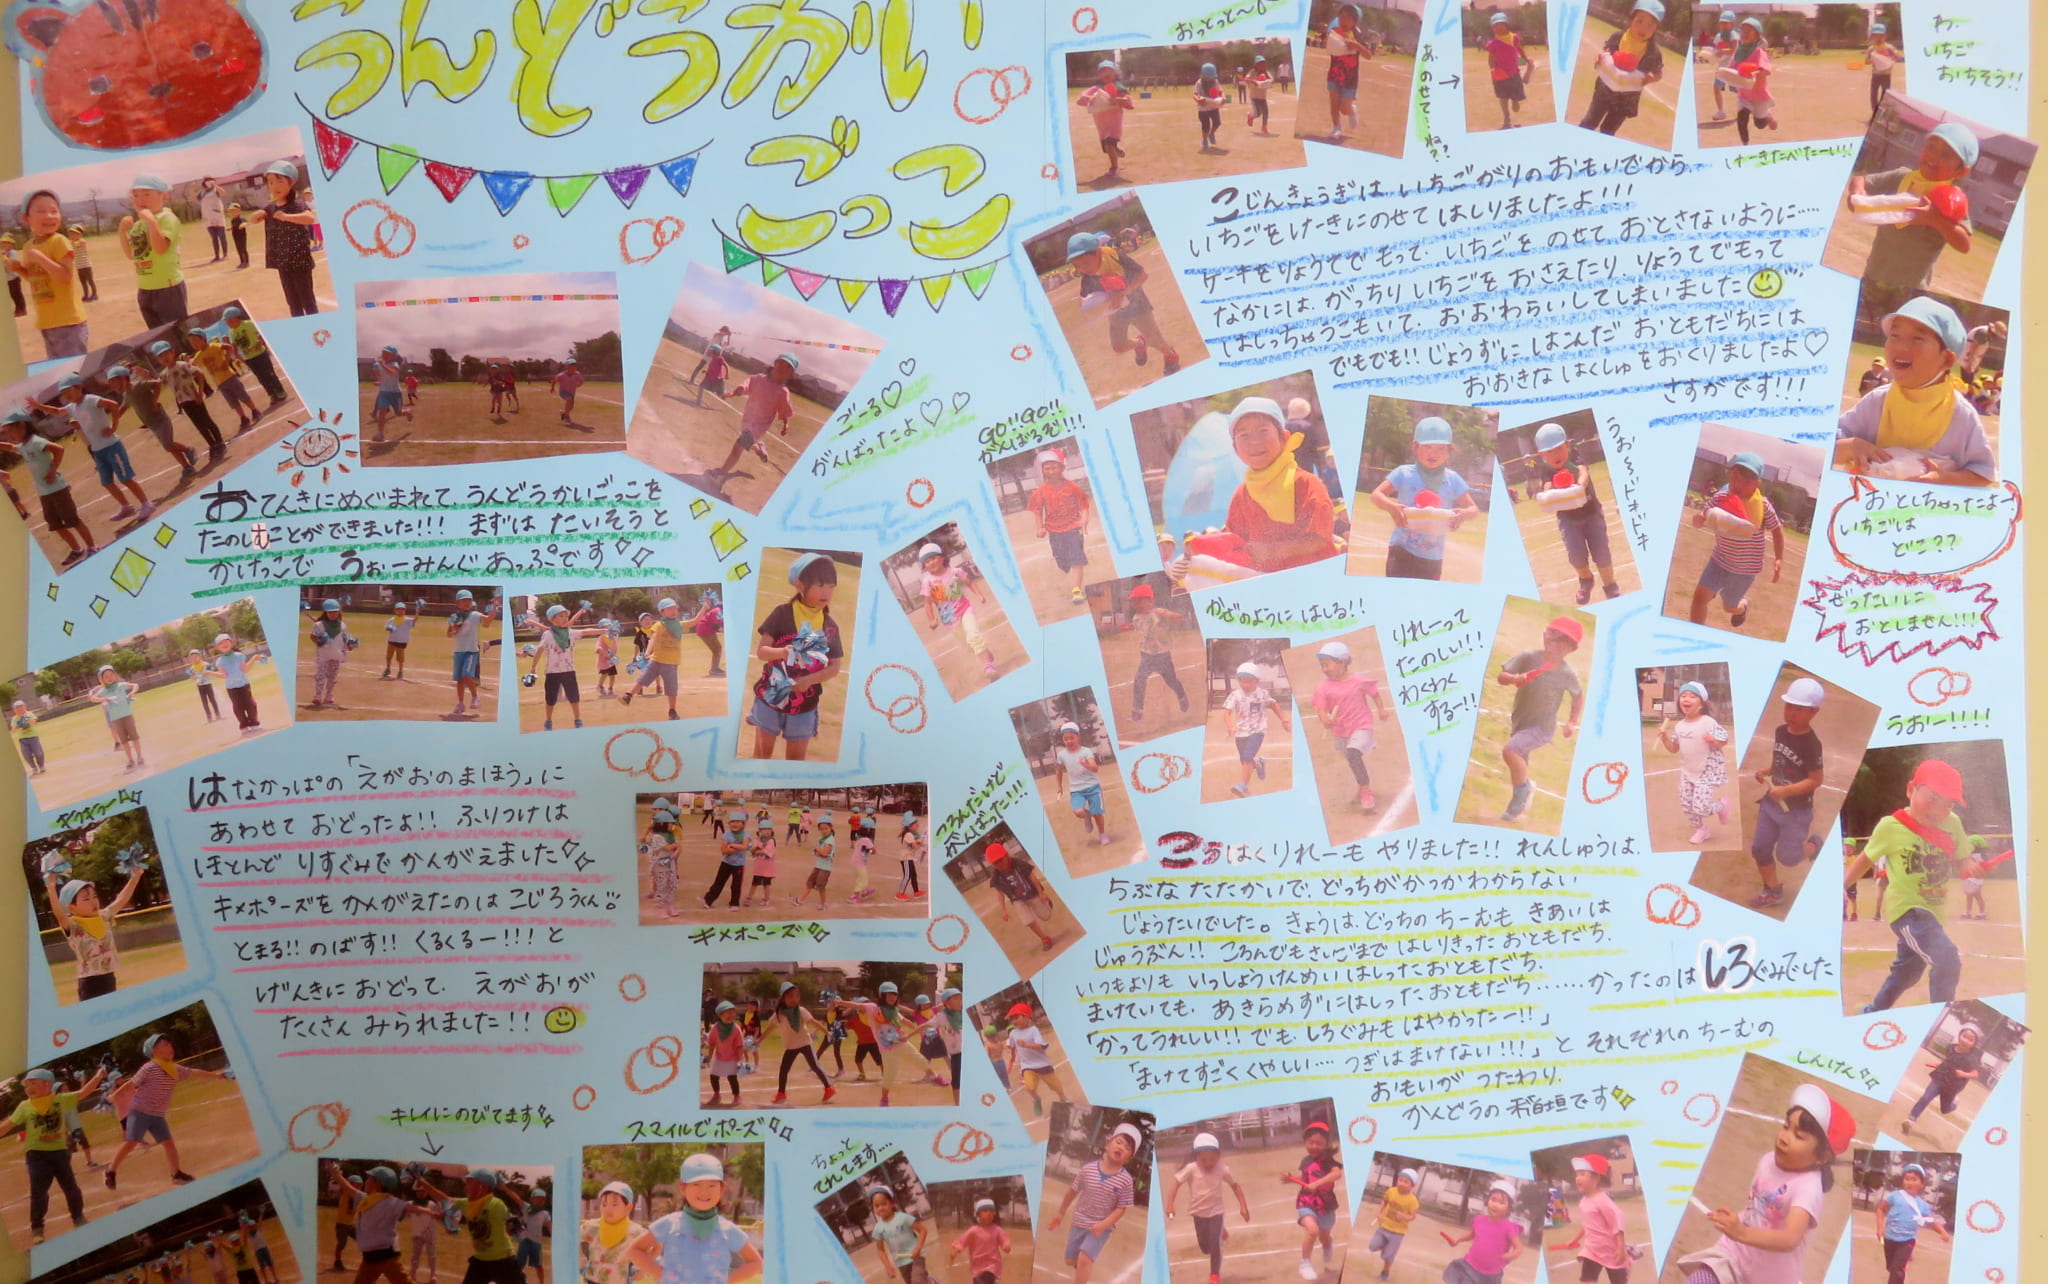 うんどうかい
ごっこ
おてんきにめぐまれて、うんどうかいごっこを
たのしむことができました!!! まずは たいそうと
かけっこで うぉーみんぐあっぷです
ごーる♡♡
がんばったよ♡♡
はなかっぱの「えがおのまほう」に
あわせて おどったよ!! ふりつけは
ほとんど りすぐみでかんがえました
キメポーズを かんがえたのは こじろうくん
とまる!! のばす!! くるくるー!!! と
げんきに おどって、えがおが
たくさん みられました!!
キメポーズ
キレイにのびてます
スマイルでポーズ
ちょっと
てれてます…
おっとっと〜
あ、のせて…ね??
→
わ、
いちご
おちそう!!
けーきたべたーい!!
こじんきょうぎは いちごがりの おもいでから、
いちごを けーきにのせて はしりましたよ!!!
ケーキをりょうてで もって、いちごを のせて おとさないように……
なかには、がっちり いちごを おさえたり りょうてでもって
はしっちゃうこもいて、おおわらいしてしまいました
でもでも!! じょうずに はこんだ おともだちには
おおきな はくしゅを おくりましたよ♡
さすがです!!!
うお〜ドキドキ
おとしちゃったよー!
いちごは
どこ??
ぜったいに
おとしません!!!
うおー!!!!
GO!!GO!!
がんばるぞ!!!
かぜのように はしる!!
りれーって
たのしい!!
わくわく
するー!!
ころんだけど
がんばった!!!!
こうはくりれーも やりました!! れんしゅうは、
ちぶな たたかいで、どっちがかつかわからない
じょうたいでした。きょうは、どっちの ちーむも きあいは
じゅうぶん!! ころんでもさいごまで はしりきった おともだち、
いつもよりも いっしょうけんめい はしった おともだち、
まけていても、あきらめずにはしった おともだち……かったのは しろぐみでした
「かってうれしい!! でも、しろぐみも はやかったー!!」
「まけてすごくくやしい…つぎはまけない!!!」と それぞれの ちーむの
おもいが つたわり、
かんどうの 稲垣です
しんけん